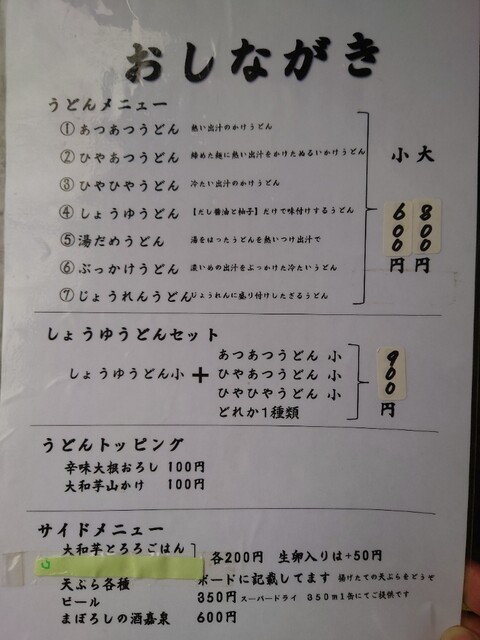 おしながき
うどんメニュー
①あつあつうどん 熱い出汁のかけうどん
②ひやあつうどん 締めた麺に熱い出汁をかけたぬるいかけうどん
③ひやひやうどん 冷たい出汁のかけうどん
④しょうゆうどん 【だし醤油と柚子】だけで味付けするうどん
⑤湯だめうどん 湯をはったうどんを熱いつけ出汁で
⑥ぶっかけうどん 濃いめの出汁をぶっかけた冷たいうどん
⑦じょうれんうどん じょうれんに盛り付けしたざるうどん
小 600円
大 800円
しょうゆうどんセット
しょうゆうどん小 +
あつあつうどん 小
ひやあつうどん 小
ひやひやうどん 小
どれか1種類
900円
うどんトッピング
辛味大根おろし 100円
大和芋山かけ 100円
サイドメニュー
大和芋とろろごはん 各200円 生卵入りは+50円
天ぷら各種 ボードに記載してます 揚げたての天ぷらをどうぞ
ビール 350円 スーパードライ 350ml缶にてご提供です
まぼろしの酒嘉泉 600円